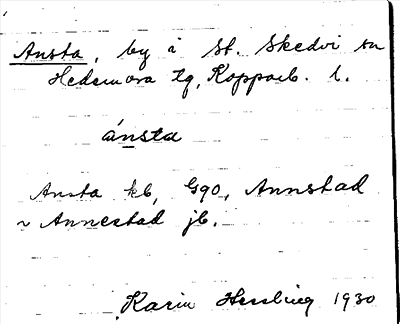 Ansta, by i St. Skedvi sn
Hedemora tg, Kopparb. l.
ánsta
Ansta kb, G90, Annstad
~ Annestad jb.
Karin 1930